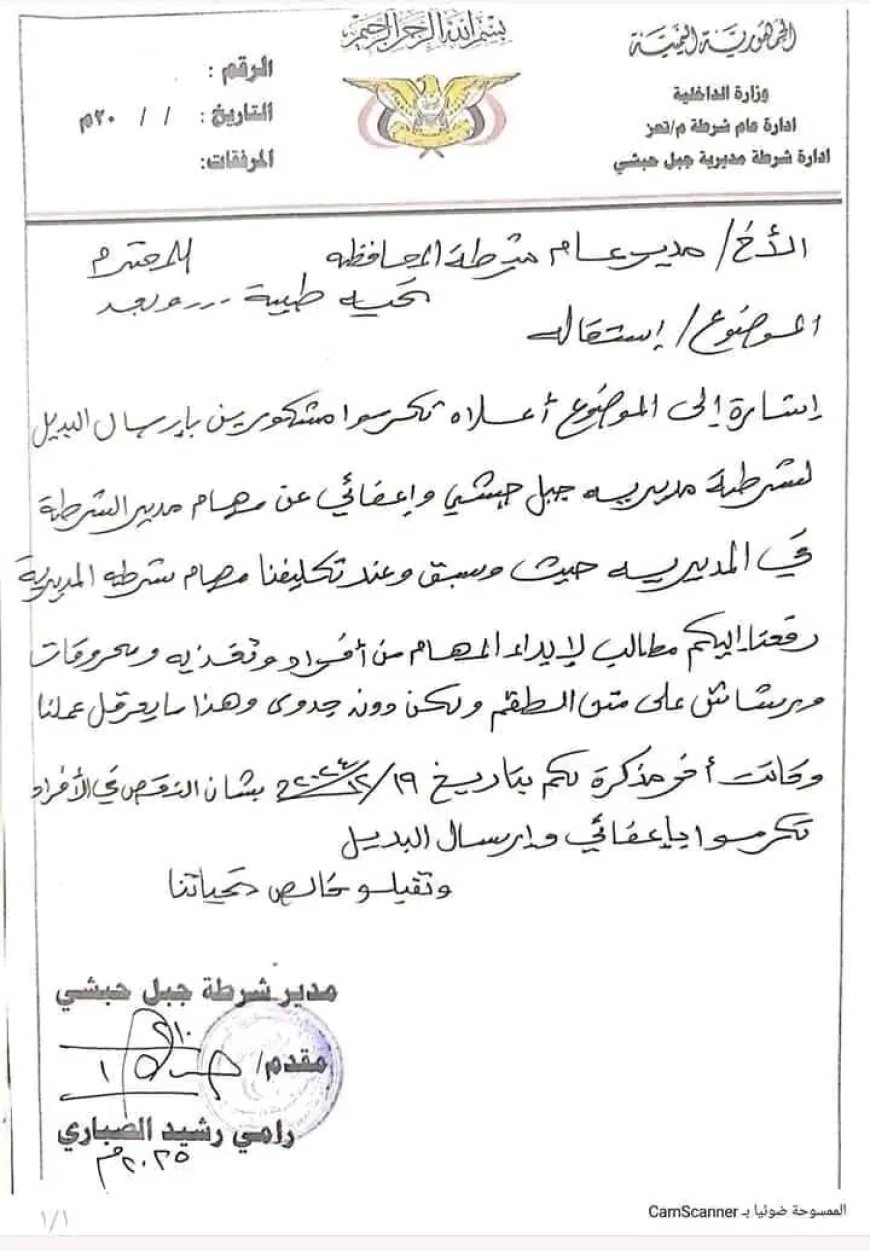 بسم الله الرحمن الرحيم
الجمهورية اليمنية
وزارة الداخلية
ادارة عام شرطة م/تعز
ادارة شرطة مديرية جبل حبشي
الرقم :
التاريخ : / / ٢٠م
المرفقات:
الأخ/ مدير عام شرطة المحافظه المحترم
تحيه طيبة .... وبعد
الموضوع/ إستقاله
إشارة إلى الموضوع أعلاه تكرموا مشكورين بإرسال البديل
لشرطة مديريه جبل حبشي وإعفائي عن مهام مدير الشرطة
في المديريه حيث وسبق وعند تكليفنا مهام شرطه المديرية
رفعنا إليكم مطالب لإبداء المهام من أفراد وتغذيه ومحروقات
ورشاش على متن الطقم ولكن دونه جدوى وهذا ما يعرقل عملنا
وكانت أخر مذكرة لكم بتاريخ ١٩/١٢/٢٠٢٤ بشان النقص في الأفراد
تكرموا بإعفائي وإرسال البديل
وتقبلو خالص تحياتنا
مدير شرطة جبل حبشي
مقدم/
رامي رشيد الصباري
٢٠٢٥م
الممسوحة ضوئيا بـ CamScanner
١/١